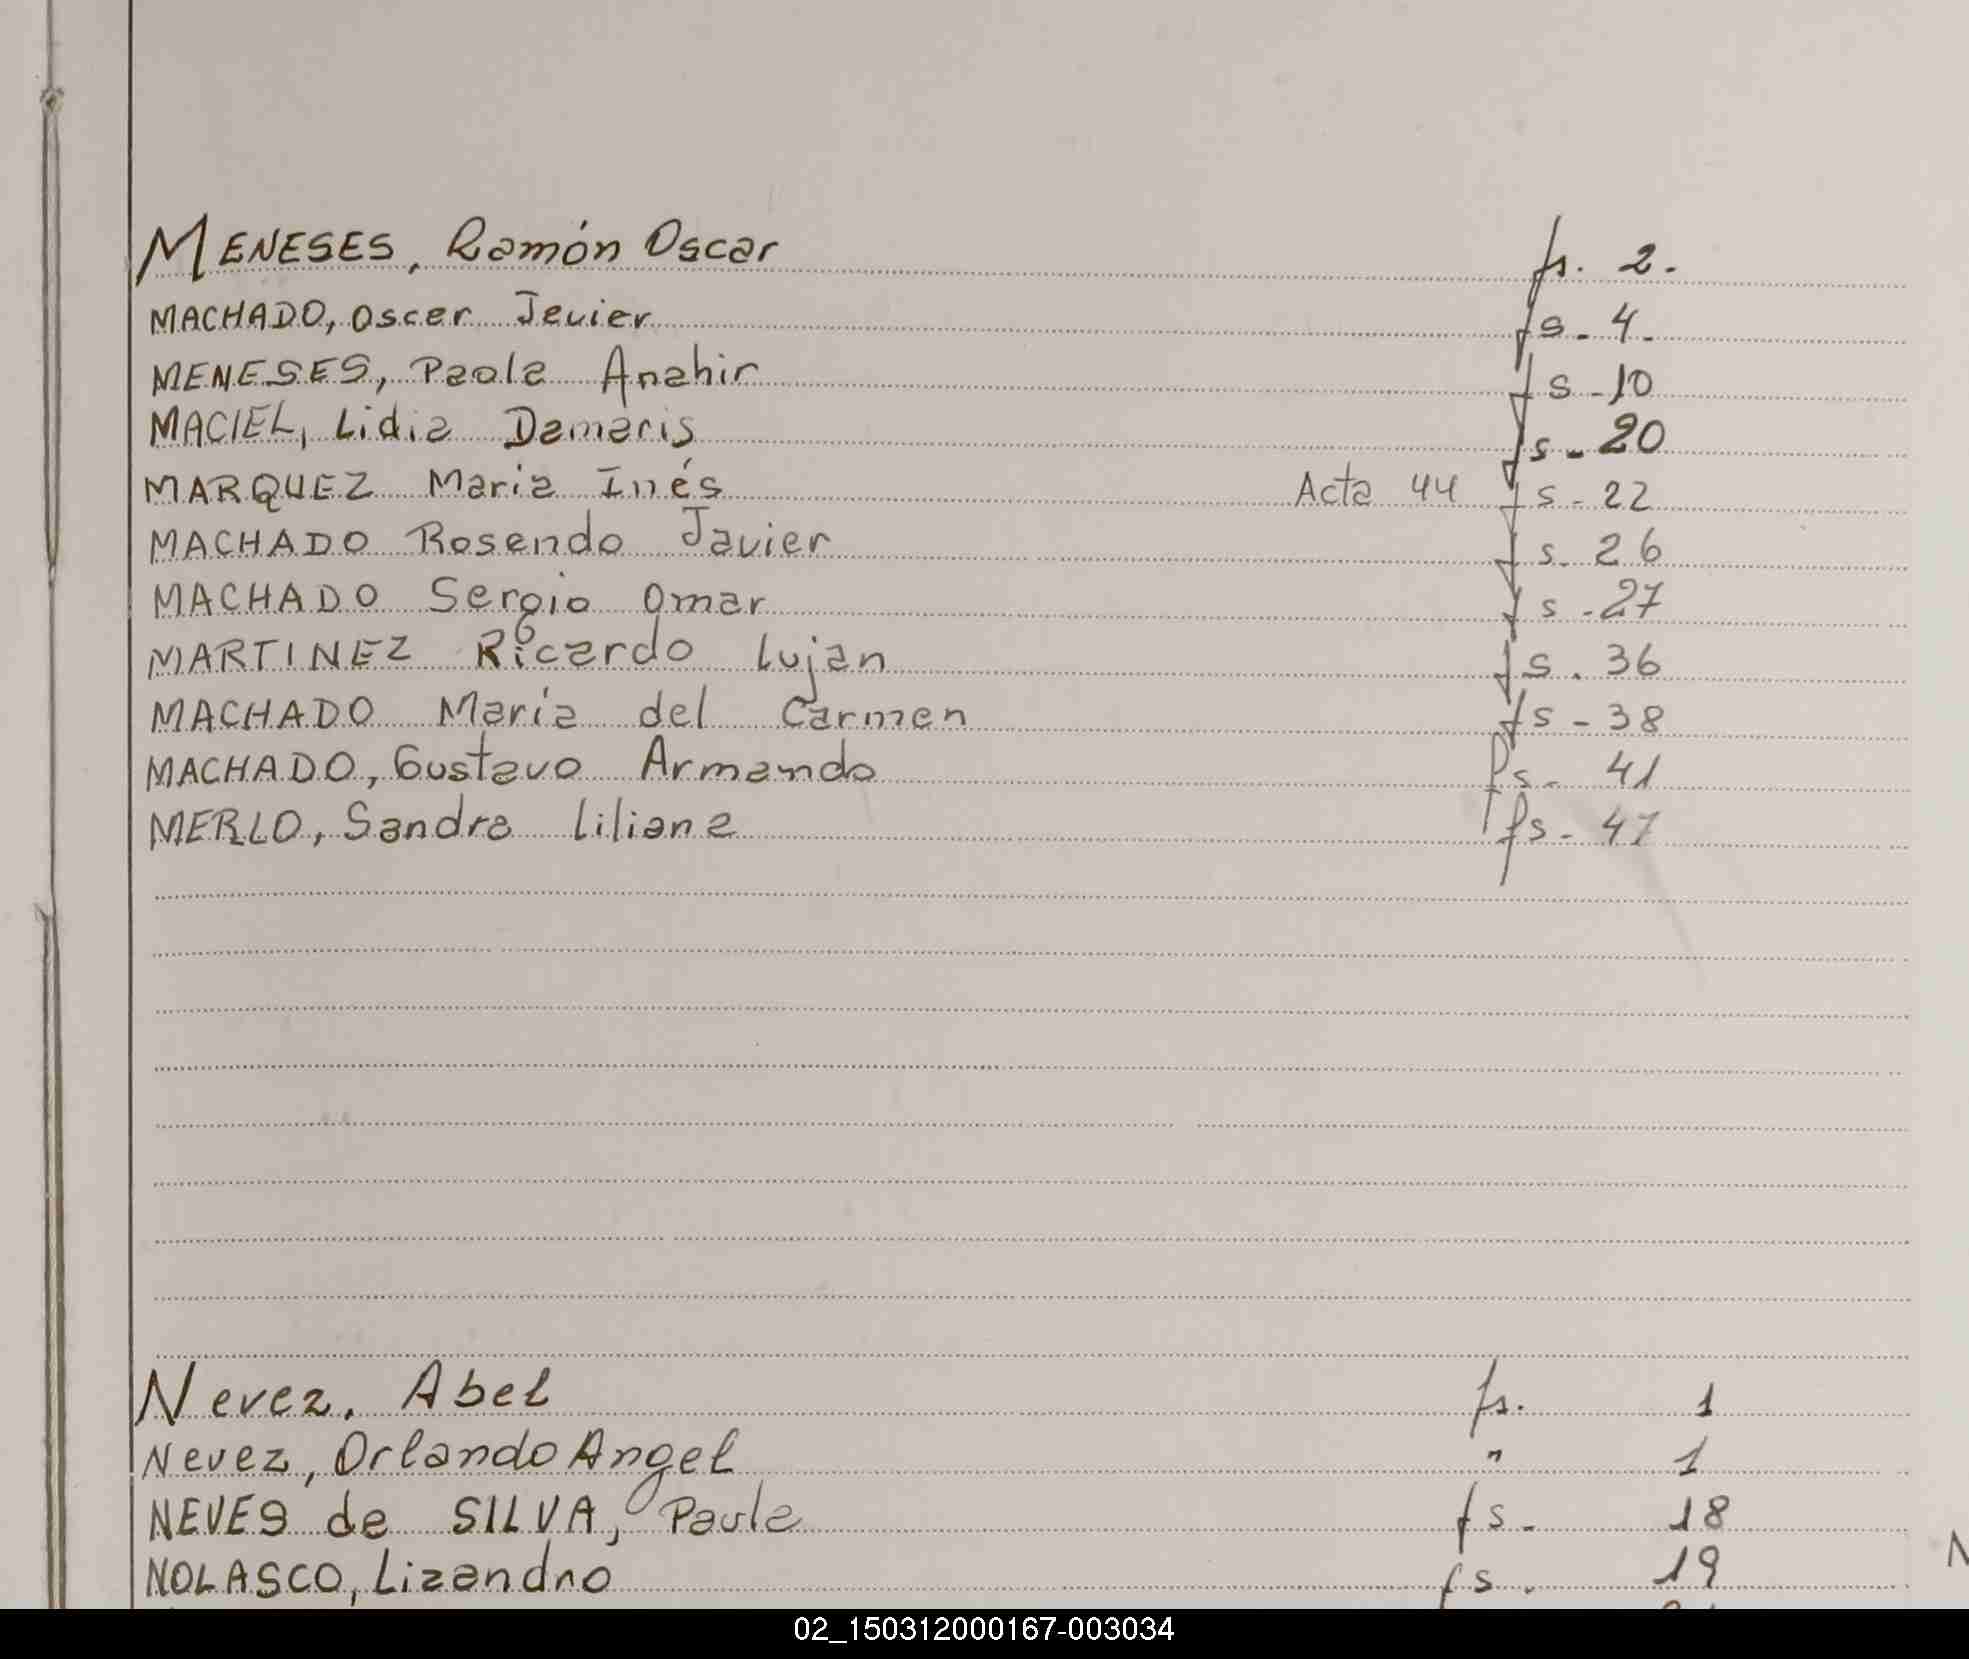 MENESES, Ramón Oscar fs. 2.
MACHADO, Oscar Javier fs. 4.
MENESES, Paola Anahir fs - 10
MACIEL, Lidia Damaris fs - 20
MARQUEZ Maria Inés Acta 44 fs - 22
MACHADO Rosendo Javier fs. 26
MACHADO Sergio Omar fs - 27
MARTINEZ Ricardo Lujan fs. 36
MACHADO María del Carmen fs - 38
MACHADO, Gustavo Armando fs - 41
MERLO, Sandra Liliana fs - 47
Nevez, Abel fs. 1
Nevez, Orlando Angel " 1
NEVES de SILVA, Paula fs - 18
NOLASCO, Lizandro fs. 19
02_150312000167-003034